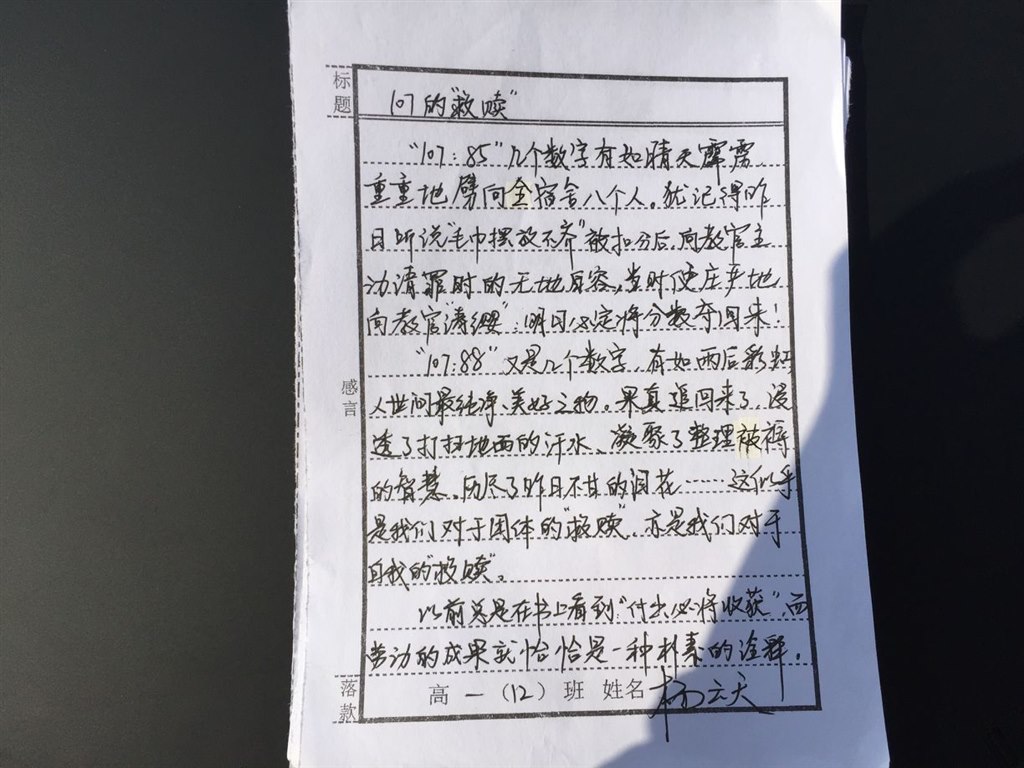 标题
107的"救赎"
"107:85"几个数字有如晴天霹雳
重重地劈向全宿舍八个人。犹记得昨
日听说"毛巾摆放不齐"被扣分后,向教官主
动请罪时的无地自容。当时便庄严地
向教官"请缨":明日必定将分数夺回来!
"107:88"又是几个数字,有如雨后彩虹
人世间最纯净、美好之物。果真追回来了,浸
透了打扫地面的汗水、凝聚了整理被褥
的智慧,历尽了昨日不甘的泪花……这似乎
是我们对于团体的"救赎",亦是我们对于
自我的"救赎"。
感言
以前总是在书上看到"付出必将收获",而
劳动的成果就恰恰是一种朴素的诠释。
落款
高一(12)班 姓名 杨云天